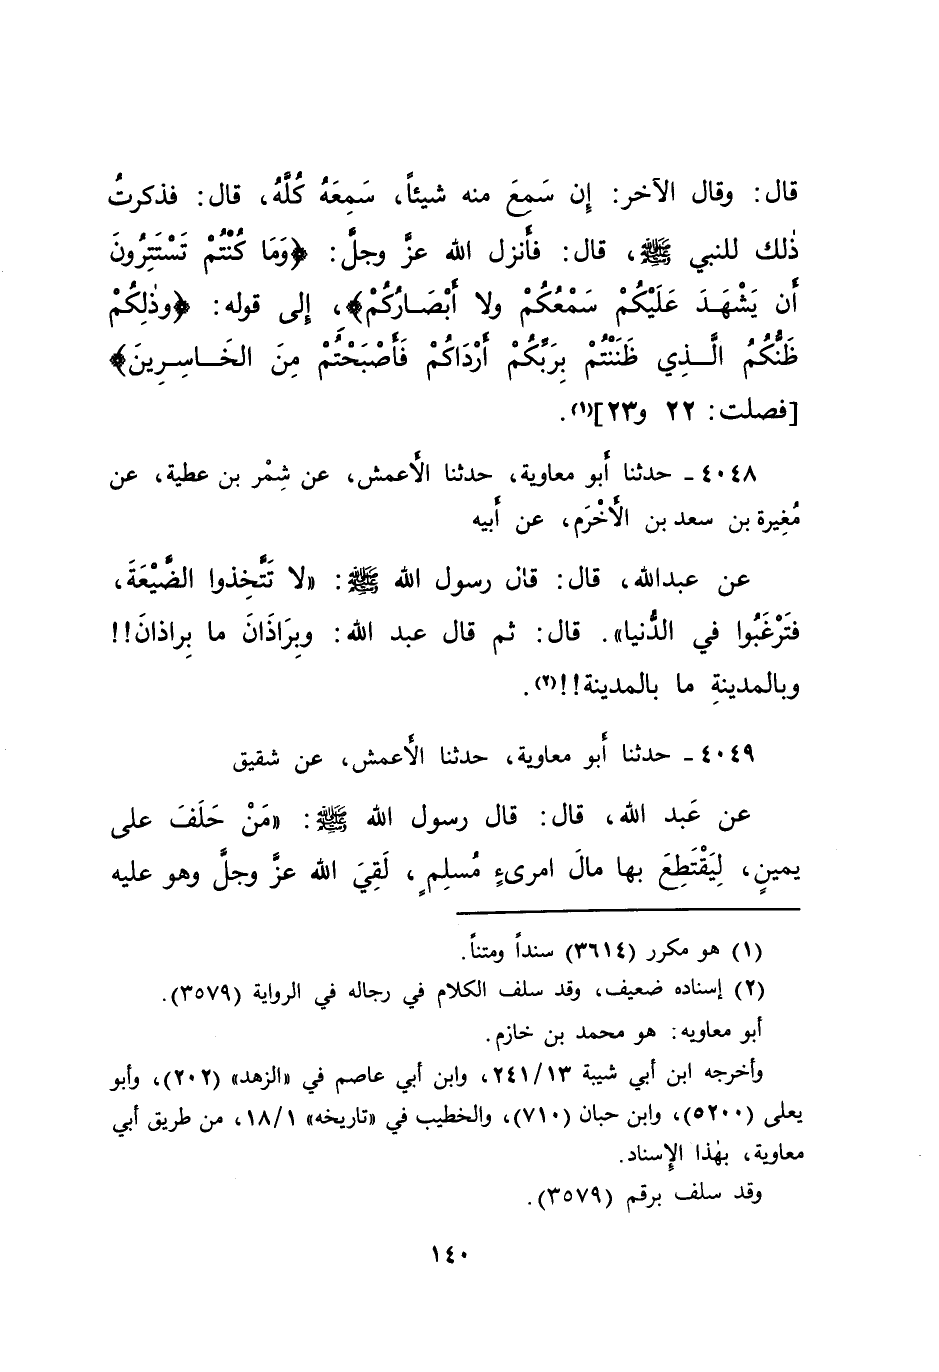 قال: وقال الآخر: إِن سَمِعَ منه شيئاً، سَمِعَهُ كُلَّهُ، قال: فذكرتُ
ذٰلك للنبي ﷺ، قال: فأَنزل الله عزَّ وجلَّ: ﴿وَمَا كُنْتُمْ تَسْتَتِرُونَ
أَن يَشْهَدَ عَلَيْكُمْ سَمْعُكُمْ ولا أَبْصَارُكُمْ﴾، إِلى قوله: ﴿وذٰلِكُمْ
ظَنُّكُمُ الَّذِي ظَنَنْتُمْ بِرَبِّكُمْ أَرْدَاكُمْ فَأَصْبَحْتُمْ مِنَ الخَاسِرِينَ﴾
[فصلت: ٢٢ و٢٣]⁽¹⁾.
٤٠٤٨ - حدثنا أَبو معاوية، حدثنا الأَعمش، عن شِمْر بن عطية، عن
مُغِيرة بن سعد بن الأَخْرَم، عن أَبيه
عن عبدالله، قال: قال رسول الله ﷺ: «لا تَتَّخِذوا الضَّيْعَةَ،
فتَرْغَبُوا في الدُّنيا». قال: ثم قال عبد الله: وبِرَاذَانَ ما بِراذانَ!!
وبالمدينةِ ما بالمدينة!!⁽²⁾.
٤٠٤٩ - حدثنا أَبو معاوية، حدثنا الأَعمش، عن شقيق
عن عَبد الله، قال: قال رسول الله ﷺ: «مَنْ حَلَفَ على
يمينٍ، لِيَقْتَطِعَ بها مالَ امرىءٍ مُسلِمٍ، لَقِيَ الله عزَّ وجلَّ وهو عليه
(١) هو مكرر (٣٦١٤) سنداً ومتناً.
(٢) إسناده ضعيف، وقد سلف الكلام في رجاله في الرواية (٣٥٧٩).
أبو معاويه: هو محمد بن خازم.
وأخرجه ابن أبي شيبة ٢٤١/١٣، وابن أبي عاصم في «الزهد» (٢٠٢)، وأبو
يعلى (٥٢٠٠)، وابن حبان (٧١٠)، والخطيب في «تاريخه» ١٨/١، من طريق أبي
معاوية، بهٰذا الإِسناد.
وقد سلف برقم (٣٥٧٩).
١٤٠